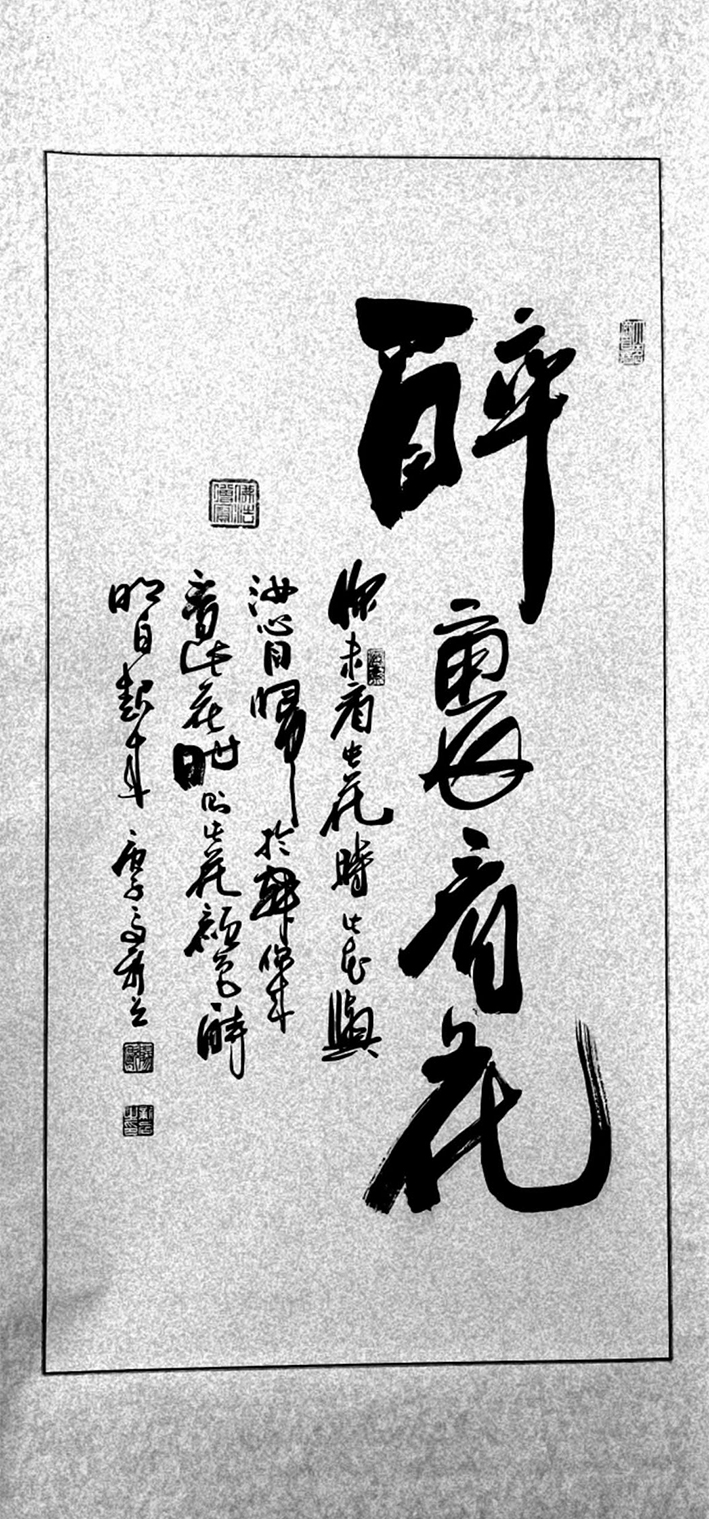 醉裏看花
你未看此花時此花與
汝心同歸於寂你來
看此花時則此花顏色一時
明白起來 庚子